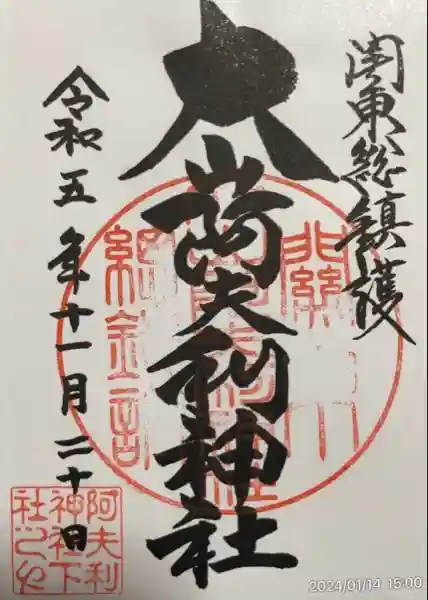 関東総鎮護
大山阿夫利神社
令和五年十一月二十日
阿夫利
神社下
社之印
2024/01/14 15:00